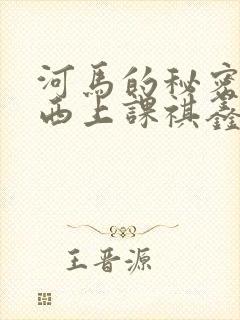 河馬的秘密
西上課祺鑫
王晋源